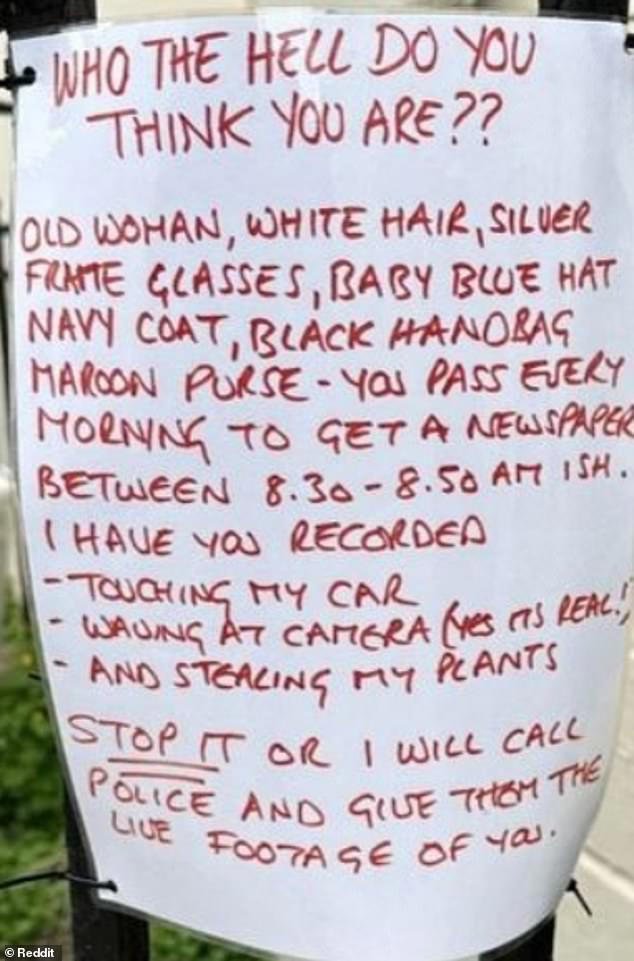 WHO THE HELL DO YOU
THINK YOU ARE??
OLD WOMAN, WHITE HAIR, SILVER
FRAME GLASSES, BABY BLUE HAT
NAVY COAT, BLACK HANDBAG
MAROON PURSE - YOU PASS EVERY
MORNING TO GET A NEWSPAPER
BETWEEN 8.30 - 8.50 AM ISH.
I HAVE YOU RECORDED
- TOUCHING MY CAR
- WAVING AT CAMERA (YES ITS REAL!)
- AND STEALING MY PLANTS
STOP IT OR I WILL CALL
POLICE AND GIVE THEM THE
LIVE FOOTAGE OF YOU.
© Reddit